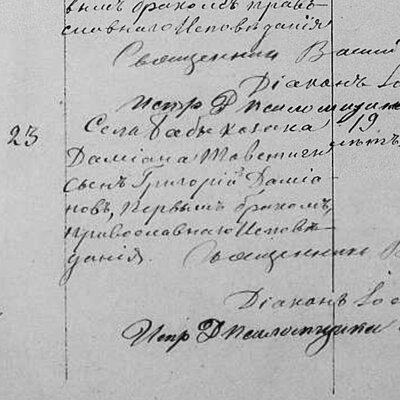 вымъ бракомъ право-
славнаго Исповѣданія
Священникъ Васил
Діаконъ
Испр Д Псаломщика
23 Села Бабы козака 19
Даміана лѣтъ
сынъ Григорій Даміа-
новъ, первымъ бракомъ,
православнаго Исповѣ-
данія. Священникъ В
Діаконъ
Испр Д Псаломщика